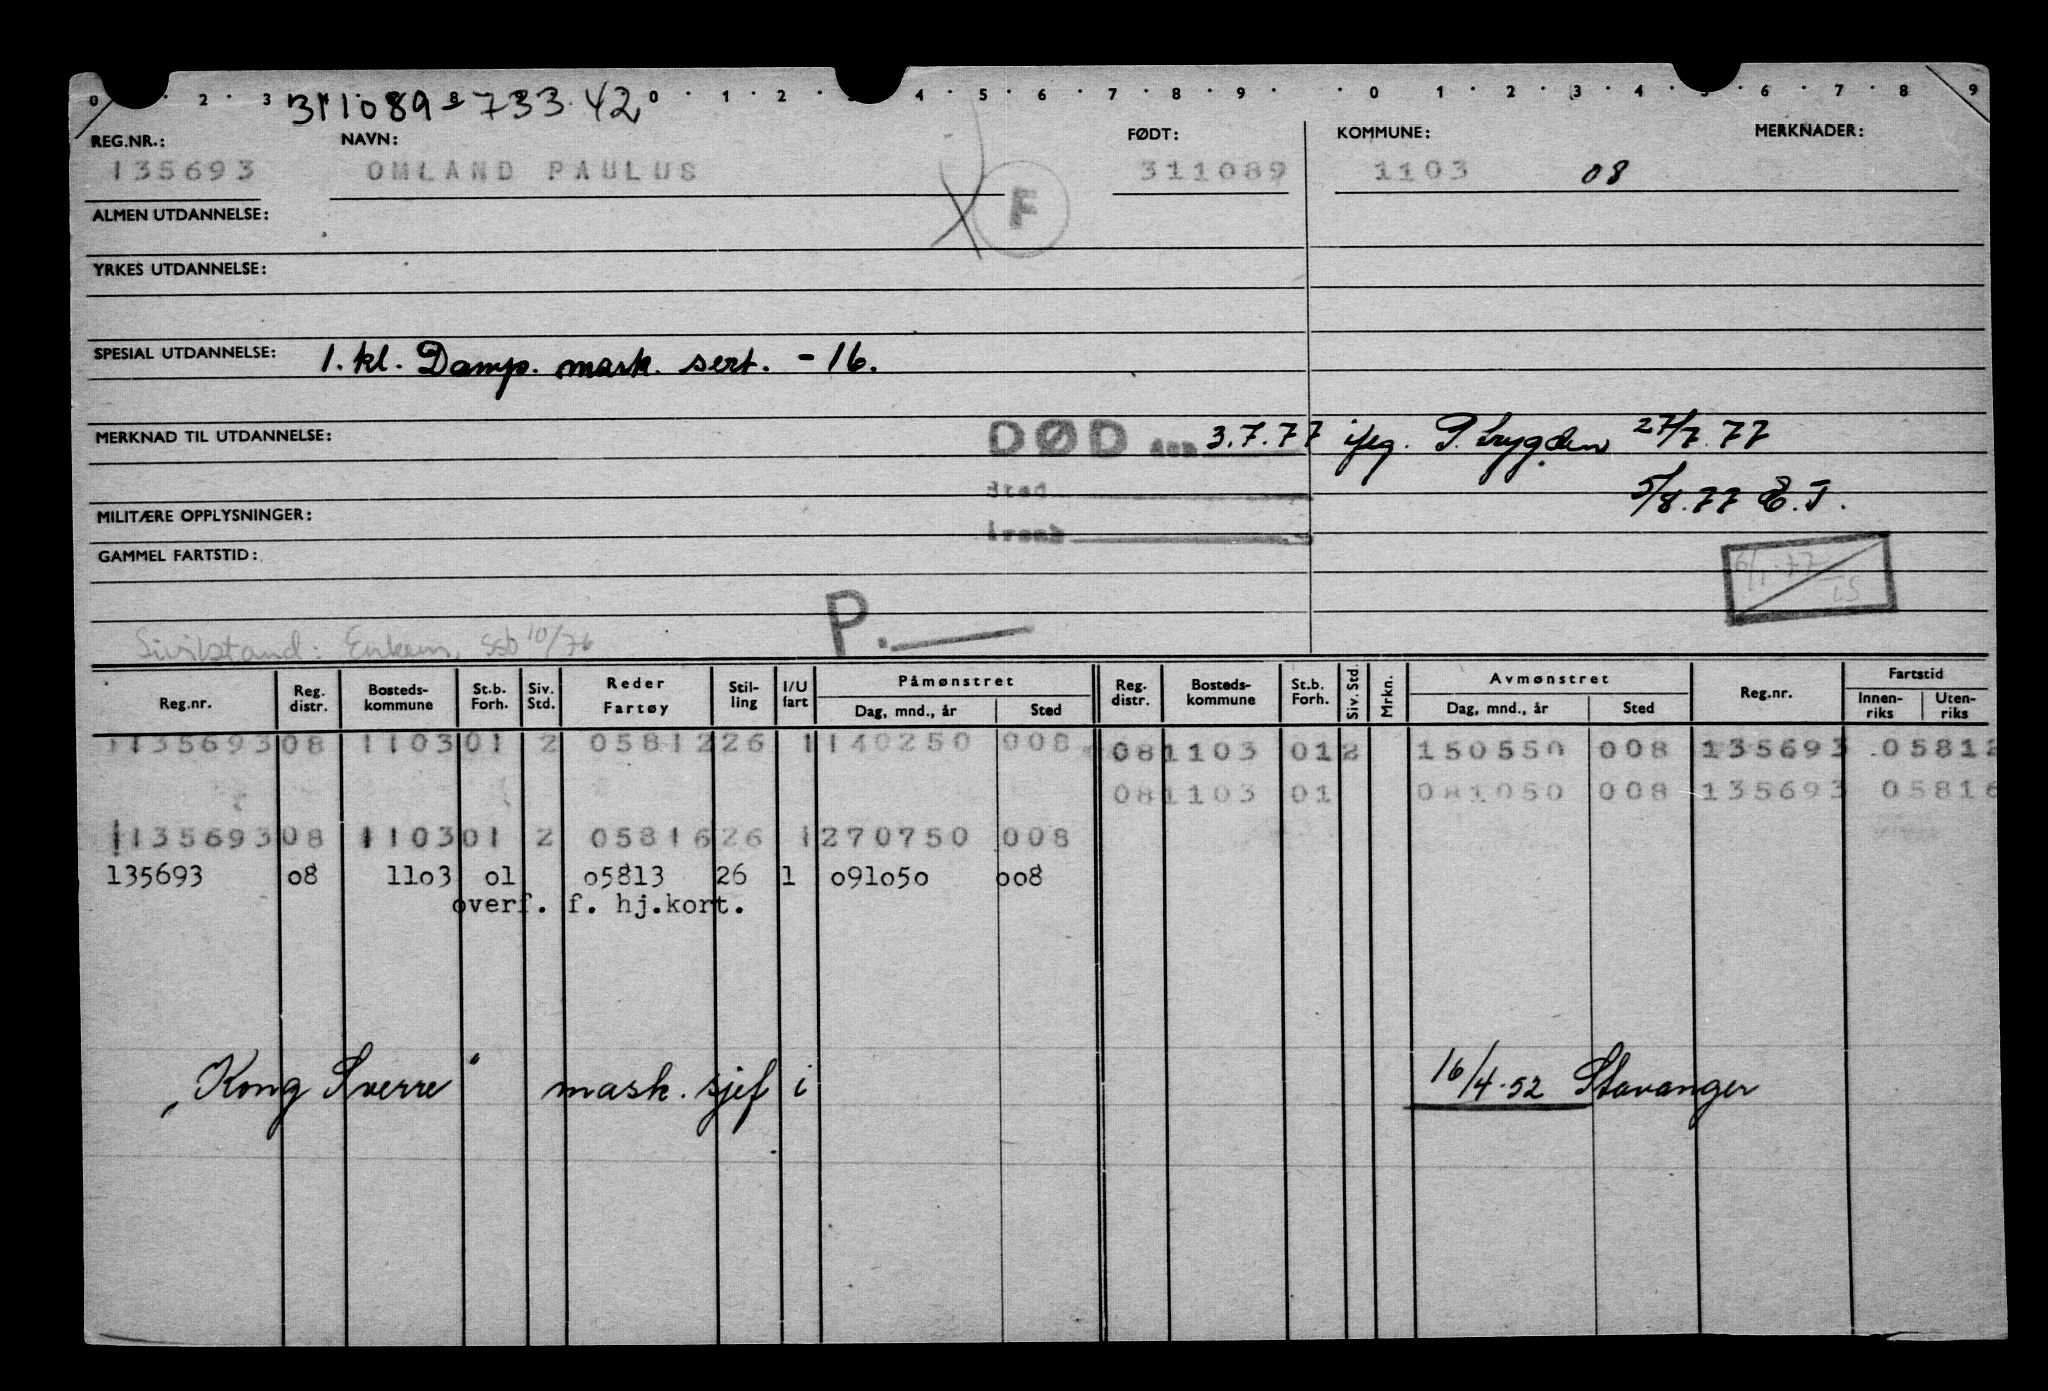 0 2 3 8 0 1 2 3 4 5 6 7 8 9 0 1 2 3 4 5 6 7 8 9
311089-733.42
REG.NR.: NAVN: FØDT: KOMMUNE: MERKNADER:
135693 OMLAND PAULUS 311089 1103 08
F
ALMEN UTDANNELSE:
YRKES UTDANNELSE:
SPESIAL UTDANNELSE: 1. kl. Damp. mask. sert. - 16.
MERKNAD TIL UTDANNELSE: DØD den 3.7.77 iføg. P. trygden 27/7.77
Sted 5/8.77 E.T.
MILITÆRE OPPLYSNINGER:
GAMMEL FARTSTID:
P.
Sivilstand: Enkem, SSB 10/76
Reg.nr. Reg. distr. Bosteds-kommune St.b. Forh. Siv. Std. Reder Fartøy Stil-ling I/U fart Påmønstret Dag, mnd., år Sted Reg. distr. Bosteds-kommune St.b. Forh. Siv. Std. Mrkn. Avmønstret Dag, mnd., år Sted Reg.nr. Fartstid Innen-riks Uten-riks
1135693 08 1103 01 2 05812 26 1 140250 008 08 1103 01 2 150550 008 135693 05812
08 1103 01 081050 008 135693 05816
1135693 08 1103 01 2 05816 26 1 270750 008
135693 08 1103 01 05813 26 1 091050 008
overf. f. hj.kort.
„Kong Sverre" mask. sjef i 16/4-52 Stavanger